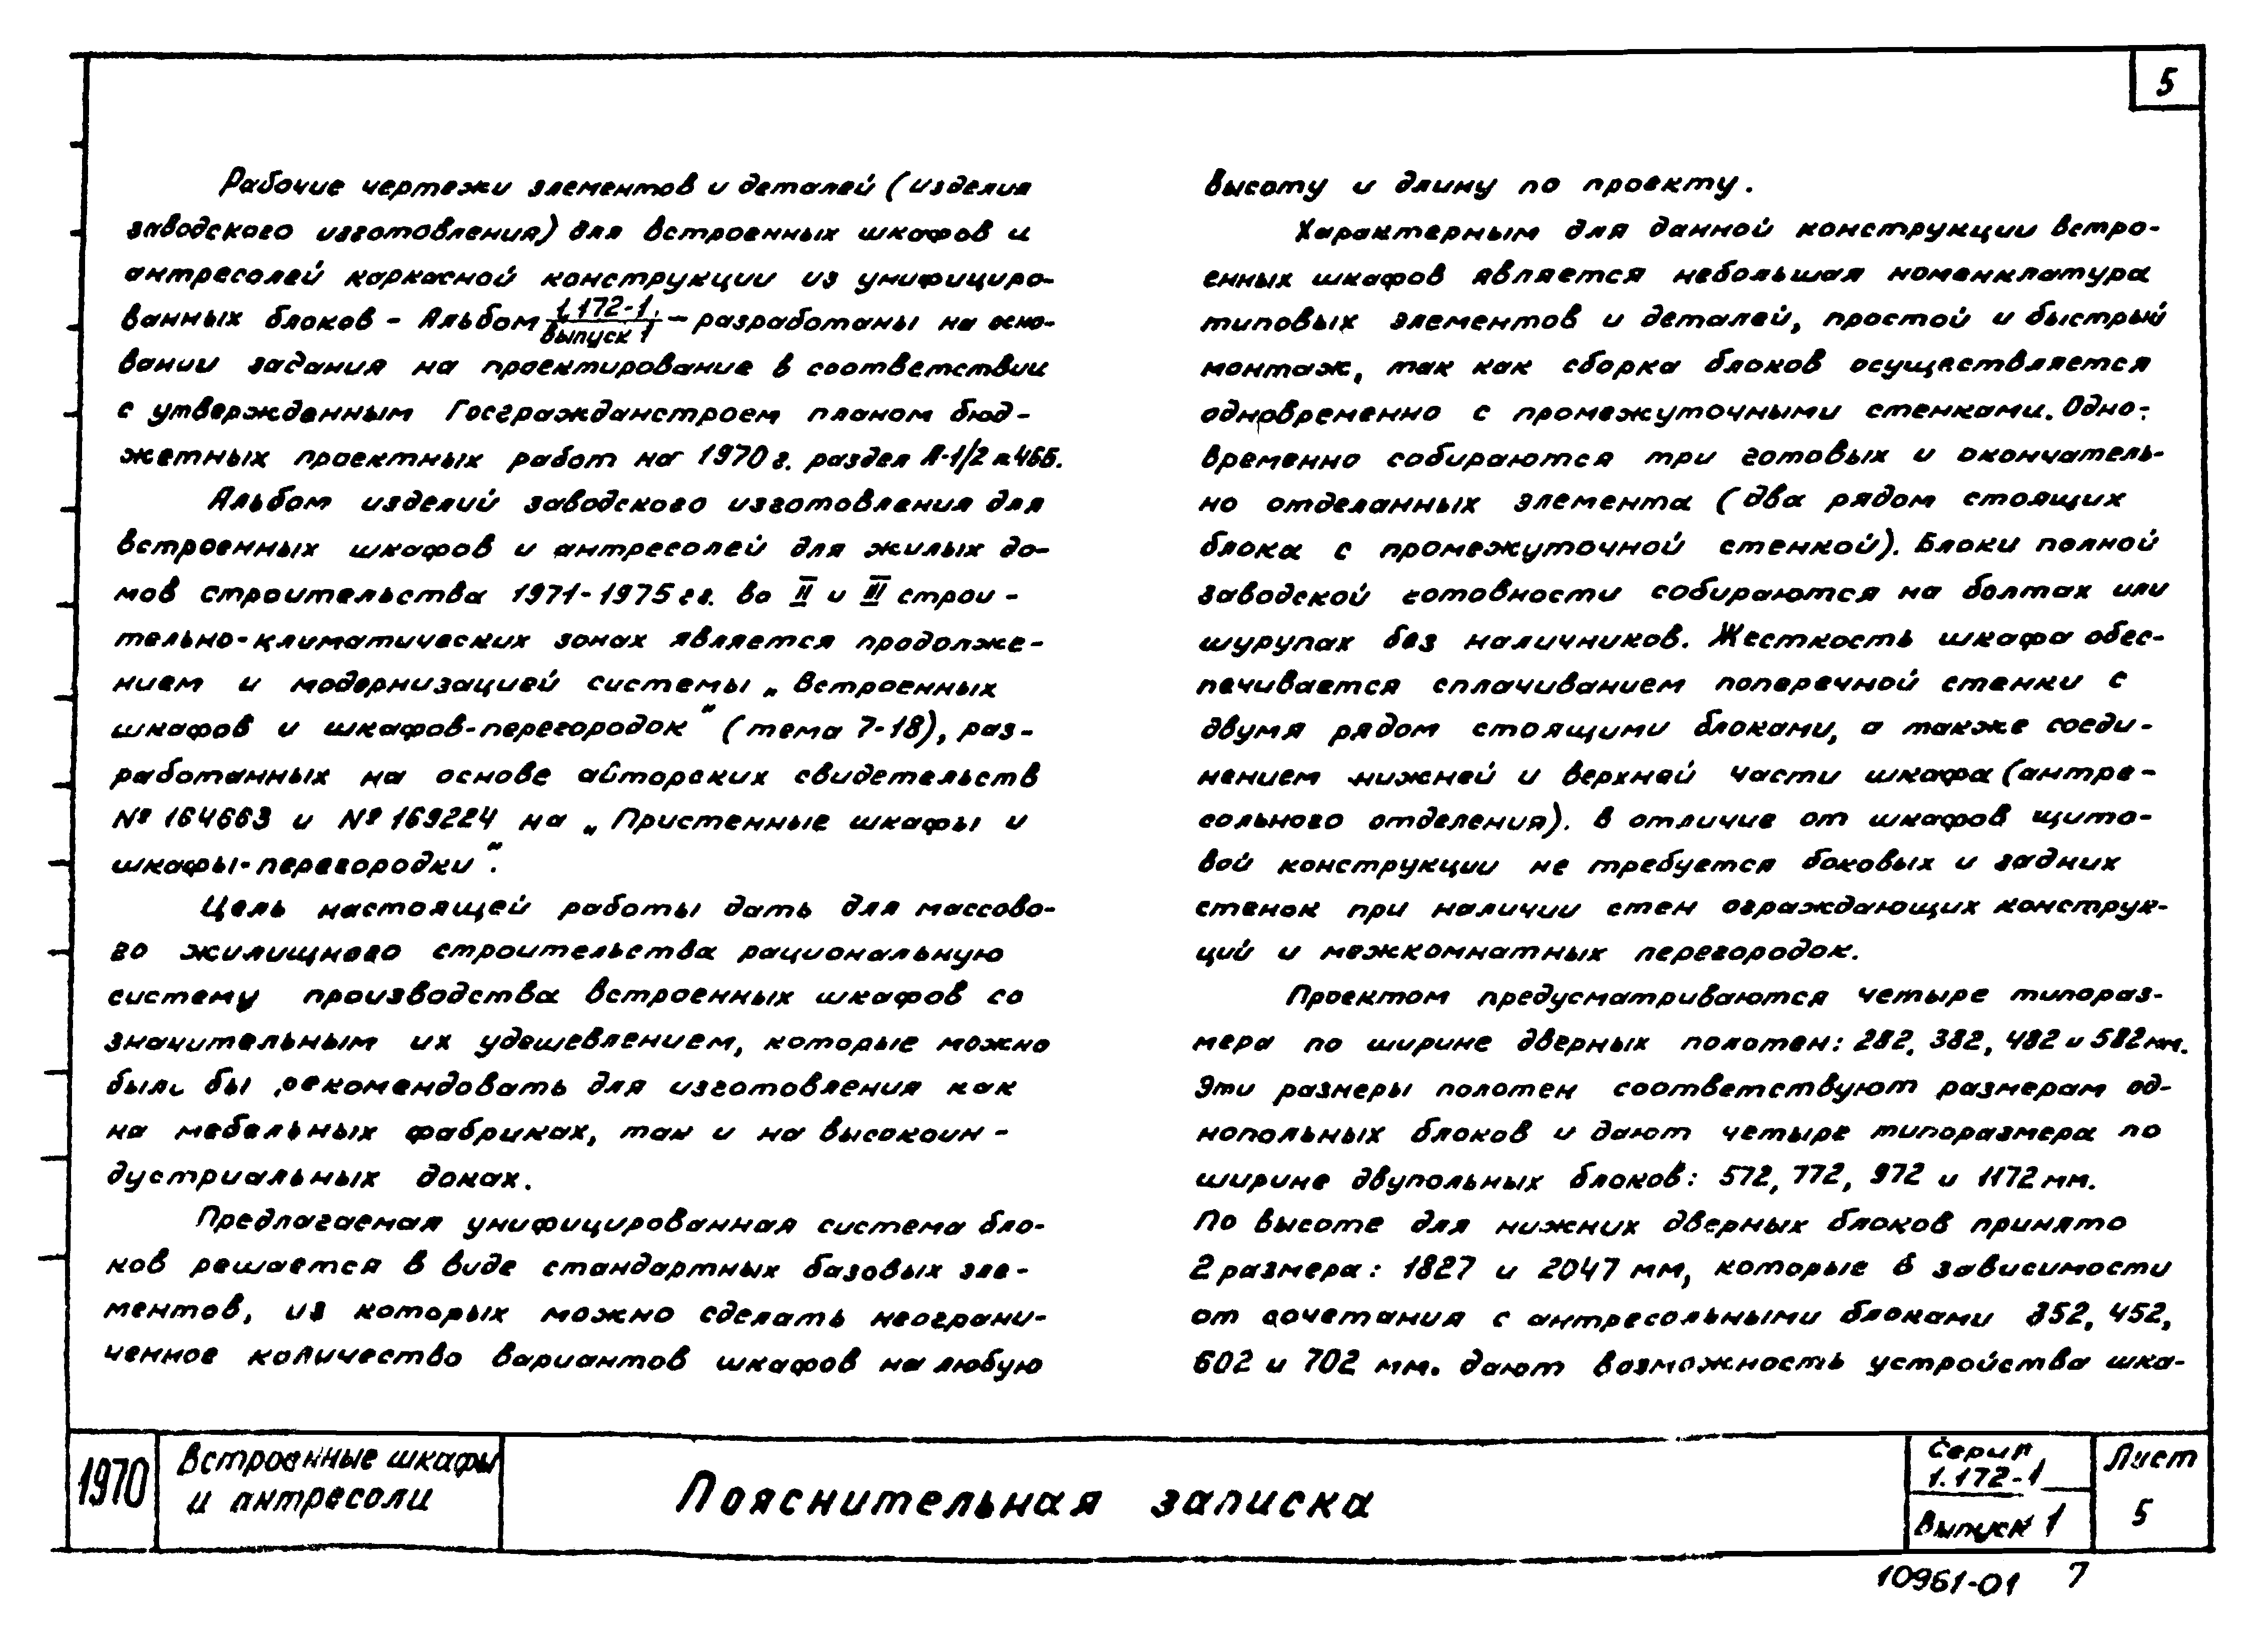 5
Рабочие чертежи элементов и деталей (изделия
заводского изготовления) для встроенных шкафов и
антресолей каркасной конструкции из унифициро-
ванных блоков - Альбом 1.172-1. / выпуск 1 - разработаны на осно-
вании задания на проектирование в соответствии
с утвержденным Госгражданстроем планом бюд-
жетных проектных работ на 1970 г. раздел
Альбом изделий заводского изготовления для
встроенных шкафов и антресолей для жилых до-
мов строительства 1971-1975 гг. во II и III строи-
тельно-климатических зонах является продолже-
нием и модернизацией системы „Встроенных
шкафов и шкафов-перегородок“ (тема 7-18), раз-
работанных на основе авторских свидетельств
№ 164663 и № 169224 на „Пристенные шкафы и
шкафы-перегородки“.
Цель настоящей работы дать для массово-
го жилищного строительства рациональную
систему производства встроенных шкафов со
значительным их удешевлением, которые можно
было бы рекомендовать для изготовления как
на мебельных фабриках, так и на высокоин-
дустриальных доках.
Предлагаемая унифицированная система бло-
ков решается в виде стандартных базовых эле-
ментов, из которых можно сделать неограни-
ченное количество вариантов шкафов на любую
высоту и длину по проекту.
Характерным для данной конструкции встро-
енных шкафов является небольшая номенклатура
типовых элементов и деталей, простой и быстрый
монтаж, так как сборка блоков осуществляется
одновременно с промежуточными стенками. Одно-
временно собираются три готовых и окончатель-
но отделанных элемента (два рядом стоящих
блока с промежуточной стенкой). Блоки полной
заводской готовности собираются на болтах или
шурупах без наличников. Жесткость шкафа обес-
печивается сплачиванием поперечной стенки с
двумя рядом стоящими блоками, а также соеди-
нением нижней и верхней части шкафа (антре-
сольного отделения). В отличие от шкафов щито-
вой конструкции не требуется боковых и задних
стенок при наличии стен ограждающих конструк-
ций и межкомнатных перегородок.
Проектом предусматриваются четыре типораз-
мера по ширине дверных полотен: 282, 382, 482 и 582 мм.
Эти размеры полотен соответствуют размерам од-
нопольных блоков и дают четыре типоразмера по
ширине двупольных блоков: 572, 772, 972 и 1172 мм.
По высоте для нижних дверных блоков принято
2 размера: 1827 и 2047 мм, которые в зависимости
от сочетания с антресольными блоками 352, 452,
602 и 702 мм. дают возможность устройства шка-
1970
Встроенные шкафы
и антресоли
Пояснительная записка
Серия
1.172-1
Выпуск 1
Лист
5
10961-01 7